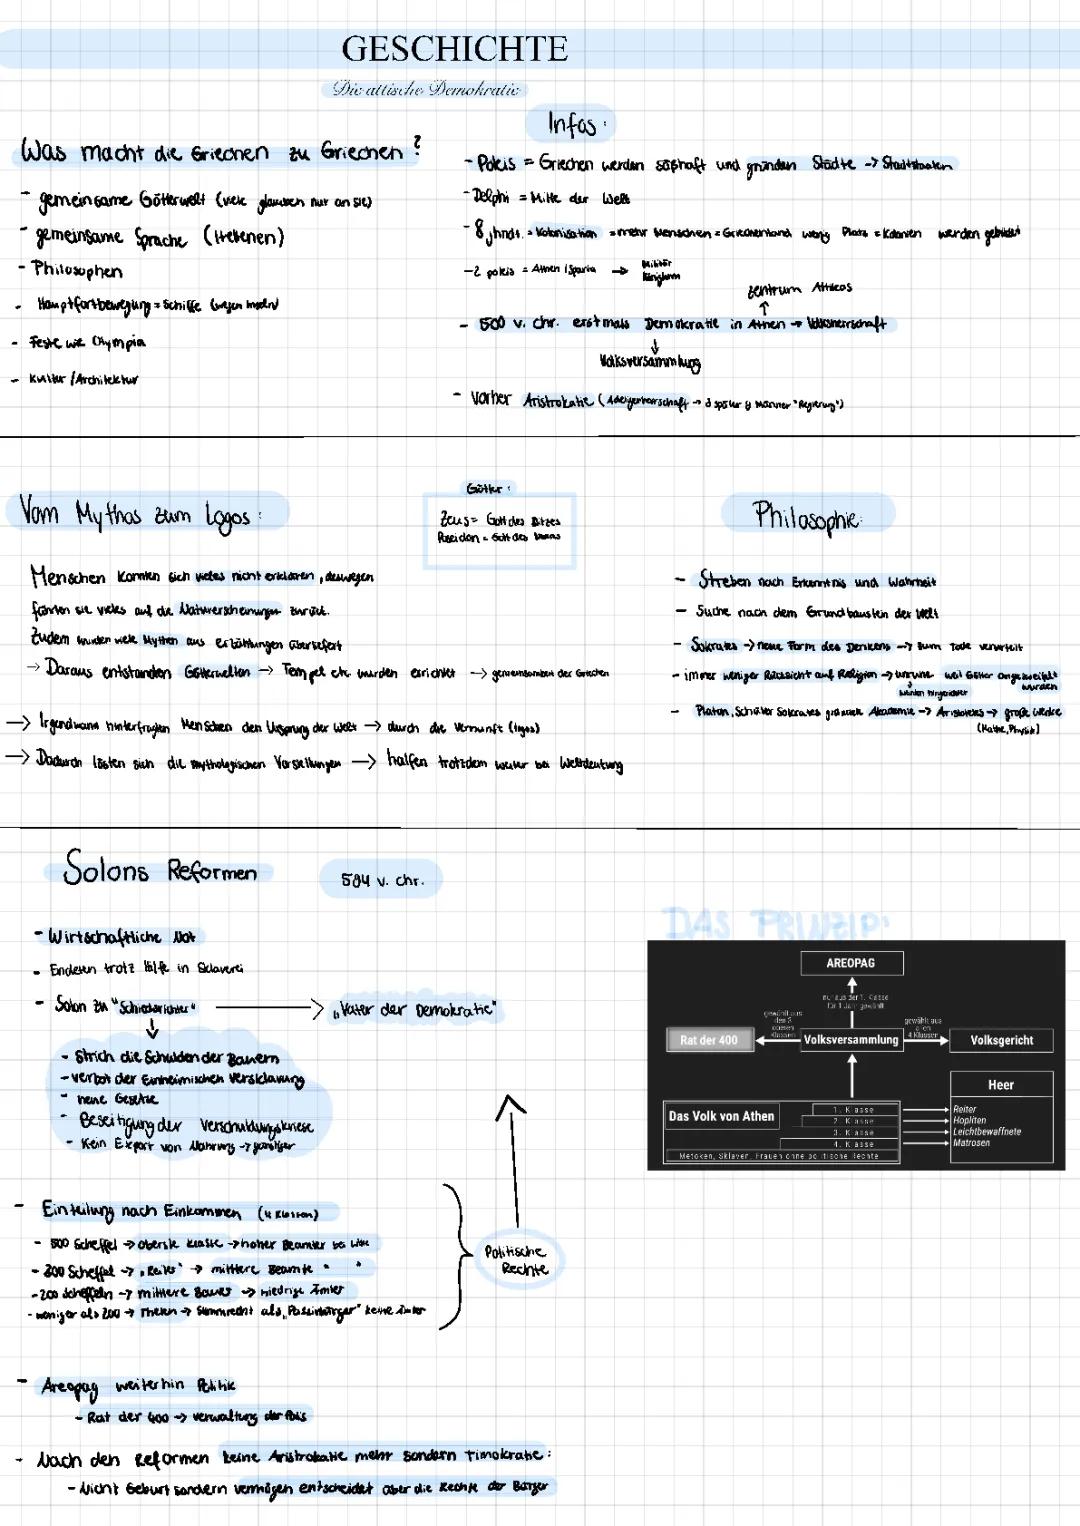 GESCHICHTE
Die attische Demokratie
Was macht die Griechen zu Griechen?
- gemeinsame Götterwelt (viele glauben nur an sie)
- gemeinsame Sprache (Hellenen)
- Philosophen
- Hauptfortbewegung = Schiffe (wegen Inseln)
- Feste wie Olympia
- Kultur / Architektur
Infos:
- Poleis = Griechen werden seßhaft und gründen Städte -> Stadtstaaten
- Delphi = Mitte der Welt
- 8. Jhndt. = Kolonisation = mehr Menschen = Griechenland wenig Platz = Kolonien werden gebildet
- 2 poleis = Athen / Sparta → Militär
Königtum
Zentrum Attikas
↑
- 500 v. Chr. erstmals Demokratie in Athen → Volksherrschaft
↓
Volksversammlung
- Vorher Aristrokatie (Adeligenherrschaft → 3 später 9 Männer "Regierung")
Vom Mythos zum Logos:
Menschen konnten sich vieles nicht erklären, deswegen
führten sie vieles auf die Naturerscheinungen zurück.
Zudem wurden viele Mythen aus Erzählungen überliefert
→ Daraus entstanden Götterwelten → Tempel etc. wurden errichtet → gemeinsamkeit der Griechen
→ Irgendwann hinterfragten Menschen den Ursprung der Welt → durch die Vernunft (logos)
→ Dadurch lösten sich die mythologischen Vorstellungen → halfen trotzdem weiter bei Weltdeutung
Götter:
Zeus = Gott des Blitzes
Poseidon = Gott des
Philosophie:
- Streben nach Erkenntnis und Wahrheit
- Suche nach dem Grundbaustein der Welt
- Sokrates → neue Form des Denkens → zum Tode verurteilt
- immer weniger Rücksicht auf Religion → Unruhe weil Götter angezweifelt
wurden hingerichtet wurden
- Platon, Schüler Sokrates gründete Akademie → Aristoteles → große Werke
(Mathe, Physik)
Solons Reformen
594 v. chr.
- Wirtschaftliche Not
- Endeten trotz Hilfe in Sklaverei
- Solon zu "Schiedsrichter" → "Vater der Demokratie"
↓
- strich die Schulden der Bauern
- verbot der Einheimischen Versklavung
- neue Gesetze
- Beseitigung der Verschuldungskriese
- Kein Export von Nahrung → günstiger
- Einteilung nach Einkommen (4 Klassen)
- 500 Scheffel → oberste Klasse → hoher Beamter
- 300 Scheffel → "Reiter" → mittlere Beamte " "
- 200 Scheffeln → mittlere Bauer → niedrige Ämter
- weniger als 200 → Theten → Stimmrecht als keine Ämter
Politische
Rechte
- Areopag weiterhin Politik
- Rat der 400 → verwaltung der Polis
- Nach den Reformen keine Aristrokatie mehr sondern Timokratie:
- Nicht Geburt sondern vermögen entscheidet über die Rechte der Bürger
DAS PRINZIP:
AREOPAG
nur aus der 1. Klasse
für 1 Jahr gewählt
gewählt aus
den 3
oberen
Klassen
gewählt aus
allen
4 Klassen
Rat der 400
Volksversammlung
Volksgericht
Heer
Das Volk von Athen
1. Klasse
2. Klasse
3. Klasse
4. Klasse
Reiter
Hopliten
Leichtbewaffnete
Matrosen
Metöken, Sklaven, Frauen ohne politische Rechte